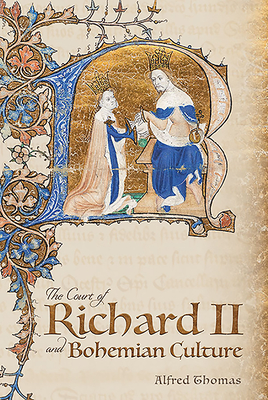 The Court of
Richard II
and Bohemian Culture
Alfred Thomas